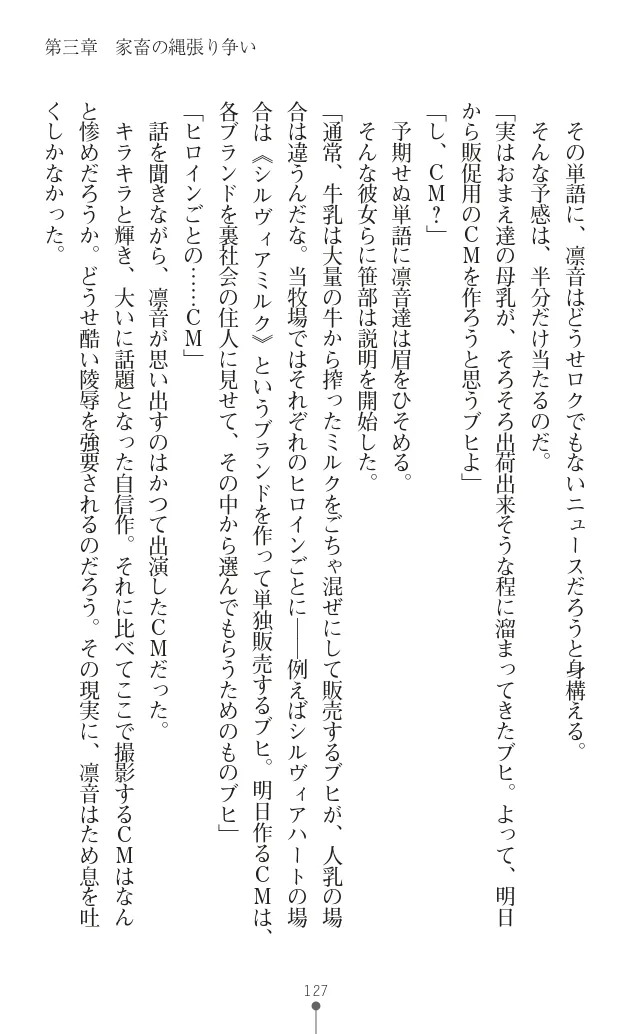 第三章　家畜の縄張り争い
その単語に、凛音はどうせロクでもないニュースだろうと身構える。
そんな予感は、半分だけ当たるのだ。
「実はおまえ達の母乳が、そろそろ出荷出来そうな程に溜まってきたブヒ。よって、明日
から販促用のＣＭを作ろうと思うブヒよ」
「し、ＣＭ？」
予期せぬ単語に凛音達は眉をひそめる。
そんな彼女らに笹部は説明を開始した。
「通常、牛乳は大量の牛から搾ったミルクをごちゃ混ぜにして販売するブヒが、人乳の場
合は違うんだな。当牧場ではそれぞれのヒロインごとに――例えばシルヴィアハートの場
合は《シルヴィアミルク》というブランドを作って単独販売するブヒ。明日作るＣＭは、
各ブランドを裏社会の住人に見せて、その中から選んでもらうためのものブヒ」
「ヒロインごとの……ＣＭ」
話を聞きながら、凛音が思い出すのはかつて出演したＣＭだった。
キラキラと輝き、大いに話題となった自信作。それに比べてここで撮影するＣＭはなん
と惨めだろうか。どうせ酷い陵辱を強要されるのだろう。その現実に、凛音はため息を吐
くしかなかった。
127